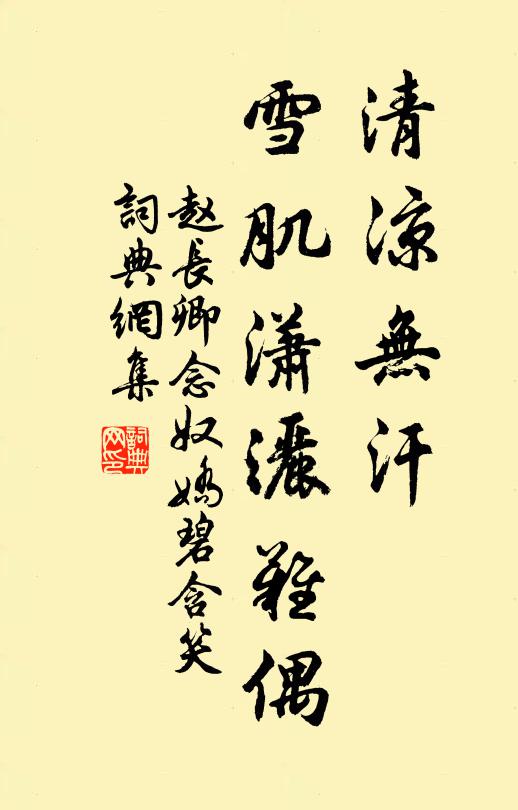 清涼無汗
雪肌瀟灑難偶
赵長卿念奴嬌碧含笑
詞典網集
詞典网印